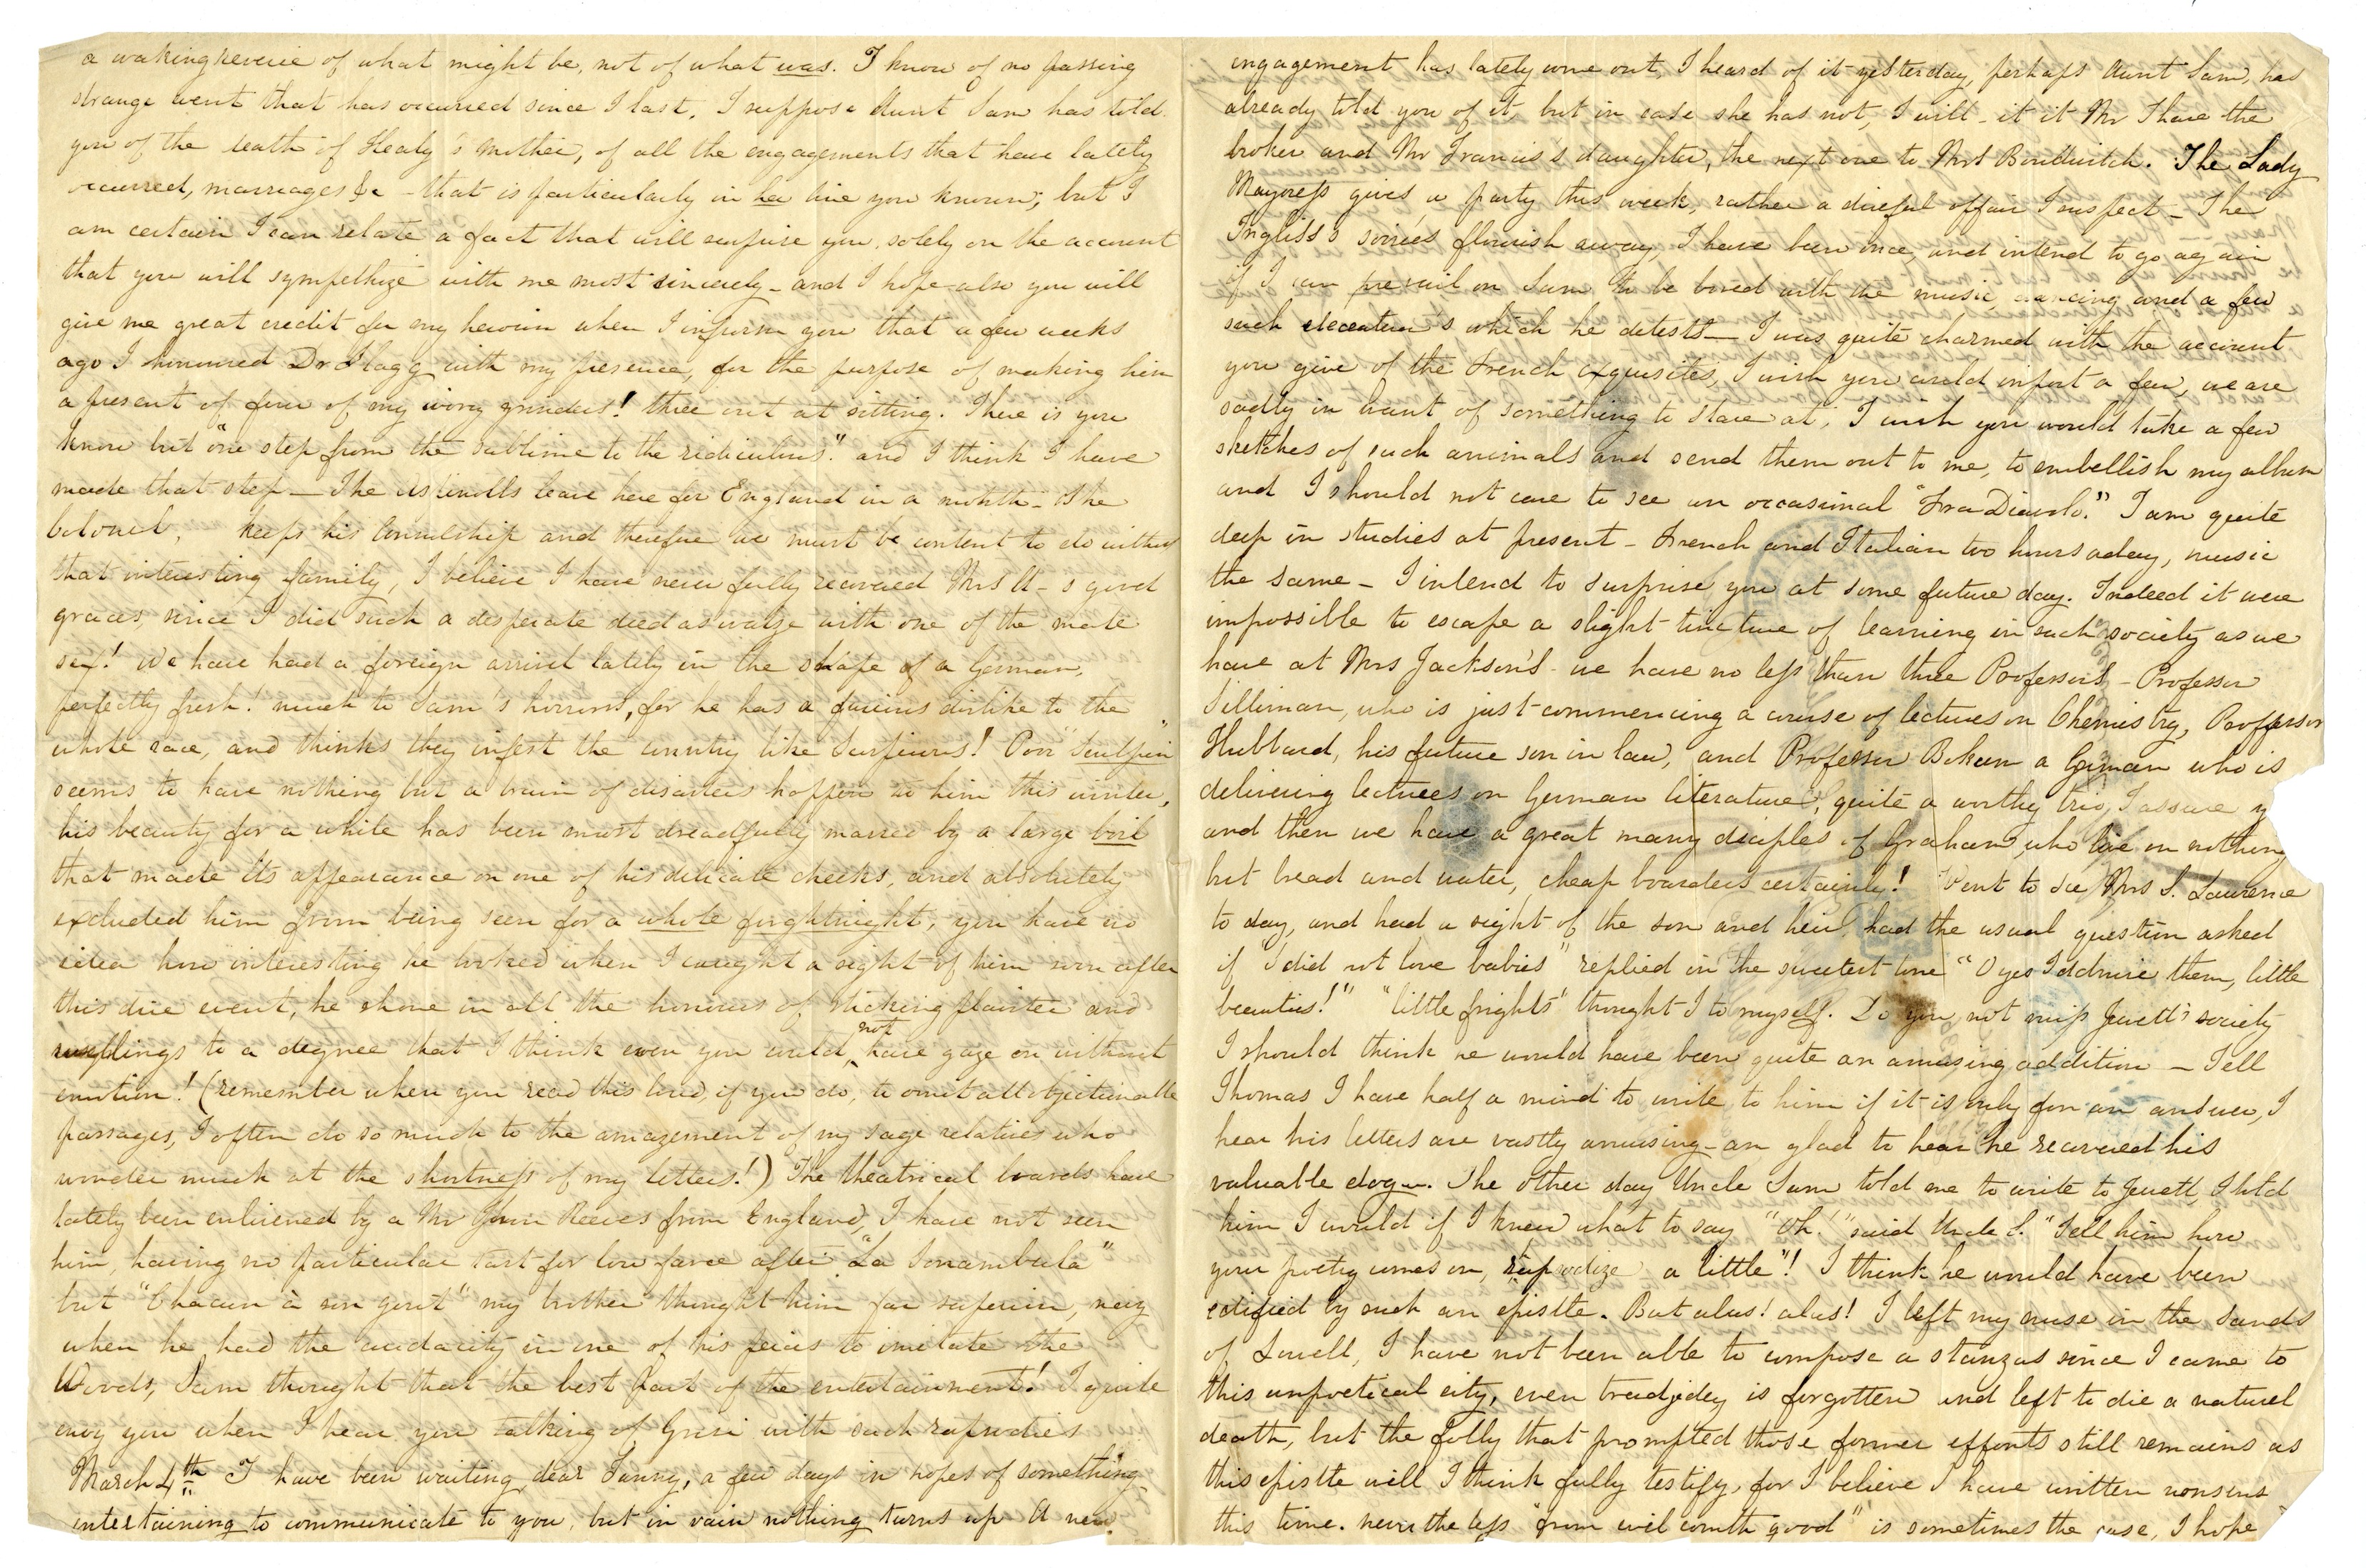 a waking reverie of what might be, not of what was. I know of no passing
strange event that has occurred since I last, I suppose Aunt Sam has told
you of the death of Healy's mother, of all the engagements that have lately
occurred, marriages &c - that is particularly in her line you know; but I
am certain I can relate a fact that will surprise you, solely on the account
that you will sympethize with me most sincerely - and I hope also you will
give me great credit for my heroism when I inform you that a few weeks
ago I honoured Dr Flagg with my presence, for the purpose of making him
a present of four of my ivory grinders! three out at sitting. There is you
know but "one step from the sublime to the ridiculous." and I think I have
made that step — The Aspinwalls leave here for England in a month - The
Colonel, keeps his Consulship and therefore we must be content to do without
that interesting family, I believe I have never fully recovered Mrs A - s good
graces, since I did such a desperate deed as walze with one of the male
sex! We have had a foreign arrival lately in the shape of a German,
perfectly fresh! much to Sam's horrors, for he has a furious dislike to the
whole race, and thinks they infest the country like Surfeiors! Poor "Sculpin"
seems to have nothing but a train of disasters happen to him this winter,
his beauty for a while has been most dreadfully marred by a large boil
that made its appearance on one of his delicate cheeks, and absolutely
excluded him from being seen for a whole forghtnight, you have no
idea how "interesting" he looked when I caught a sight of him soon after
this dire event, he shone in all the honours of sticking plaister and
to a degree that I think even you could not have gaze on without
emotion! (remember when you read this loud, if you do, to omit all objectionable
passages, I often do so much to the amazement of my sage relatives who
wonder much at the shortness of my letters!) The theatrical boards have
lately been enlivened by a Mr John Reeves from England, I have not seen
him, having no particular tast for low farce after "La Sonambula"
but "Chacun à son gout" my brother thought him far superior, nay
when he had the audacity in one of his peices to imitate the
Woods, Sam thought that the best part of the entertainment! I quite
envy you when I hear you talking of Grisi with such rapsodies
March 4th I have been waiting, dear Fanny, a few days in hopes of something
entertaining to communicate to you, but in vain nothing turns up A new
engagement has lately come out, I heard of it yesterday, perhaps Aunt Sam, has
already told you of it, but in case she has not, I will - it it Mr Thare the
broker and Mr Francis's daughter, the next one to Mrs Bowditch. The Lady
Mayoress gives a party this week, rather a direful affair I suspect - The
Ingliss's soirées flourish away, I have been once, and intend to go again
if I can prevail on Sam to be bored with the music dancing and a few
such which he detests — I was quite charmed with the account
you give of the French exquisites, I wish you could import a few, we are
sadly in want of something to stare at, I wish you would take a few
sketches of such animals and send them out to me, to embellish my album
and I should not care to see an occasional "Fra Diavolo." I am quite
deep in studies at present - French and Italian two hours a day, music
the same - I intend to surprise you at some future day. Indeed it were
impossible to escape a slight tincture of learning in such society as we
have at Mrs Jackson's - we have no less than three Professors - Professor
Silliman, who is just commencing a course of lectures on Chemistry, Proffessor
Hubbard, his future son in law, and Professor Bokum a German who is
delivering lectures on German literature, quite a worthy trio, I assure y
and then we have a great many diciples of Graham, who live on nothing
but bread and water, cheap boarders certainly! Went to see Mrs S. Lawrence
to day, and had a sight of the son and heir, had the usual question asked
if "I did not love babies" replied in the sweetest tone "O yes I admire them, little
beauties!" "little frights" thought I to myself. Do you not miss Jewett's society
I should think he would have been quite an amusing addition — Tell
Thomas I have half a mind to write to him if it is only for an answer, I
hear his letters are vastly amusing - am glad to hear he recovered his
valuable dog. The other day Uncle Sam told me to write to Jewett, I told
him I would if I knew what to say "Oh!" said Uncle S. "Tell him how
your poetry comes on, rapsodize a little"! I think he would have been
edified by such an epistle. But alas! alas! I left my muse in the sands
of Lowell, I have not been able to compose a stanzas since I came to
this unpoetical city, even tradjedey is forgotten and left to die a natural
death, but the folly that prompted those former efforts still remains as
this epistle will I think fully testify, for I believe I have written nonsens
this time. never the less "from evil cometh good" is sometimes the case, I hope